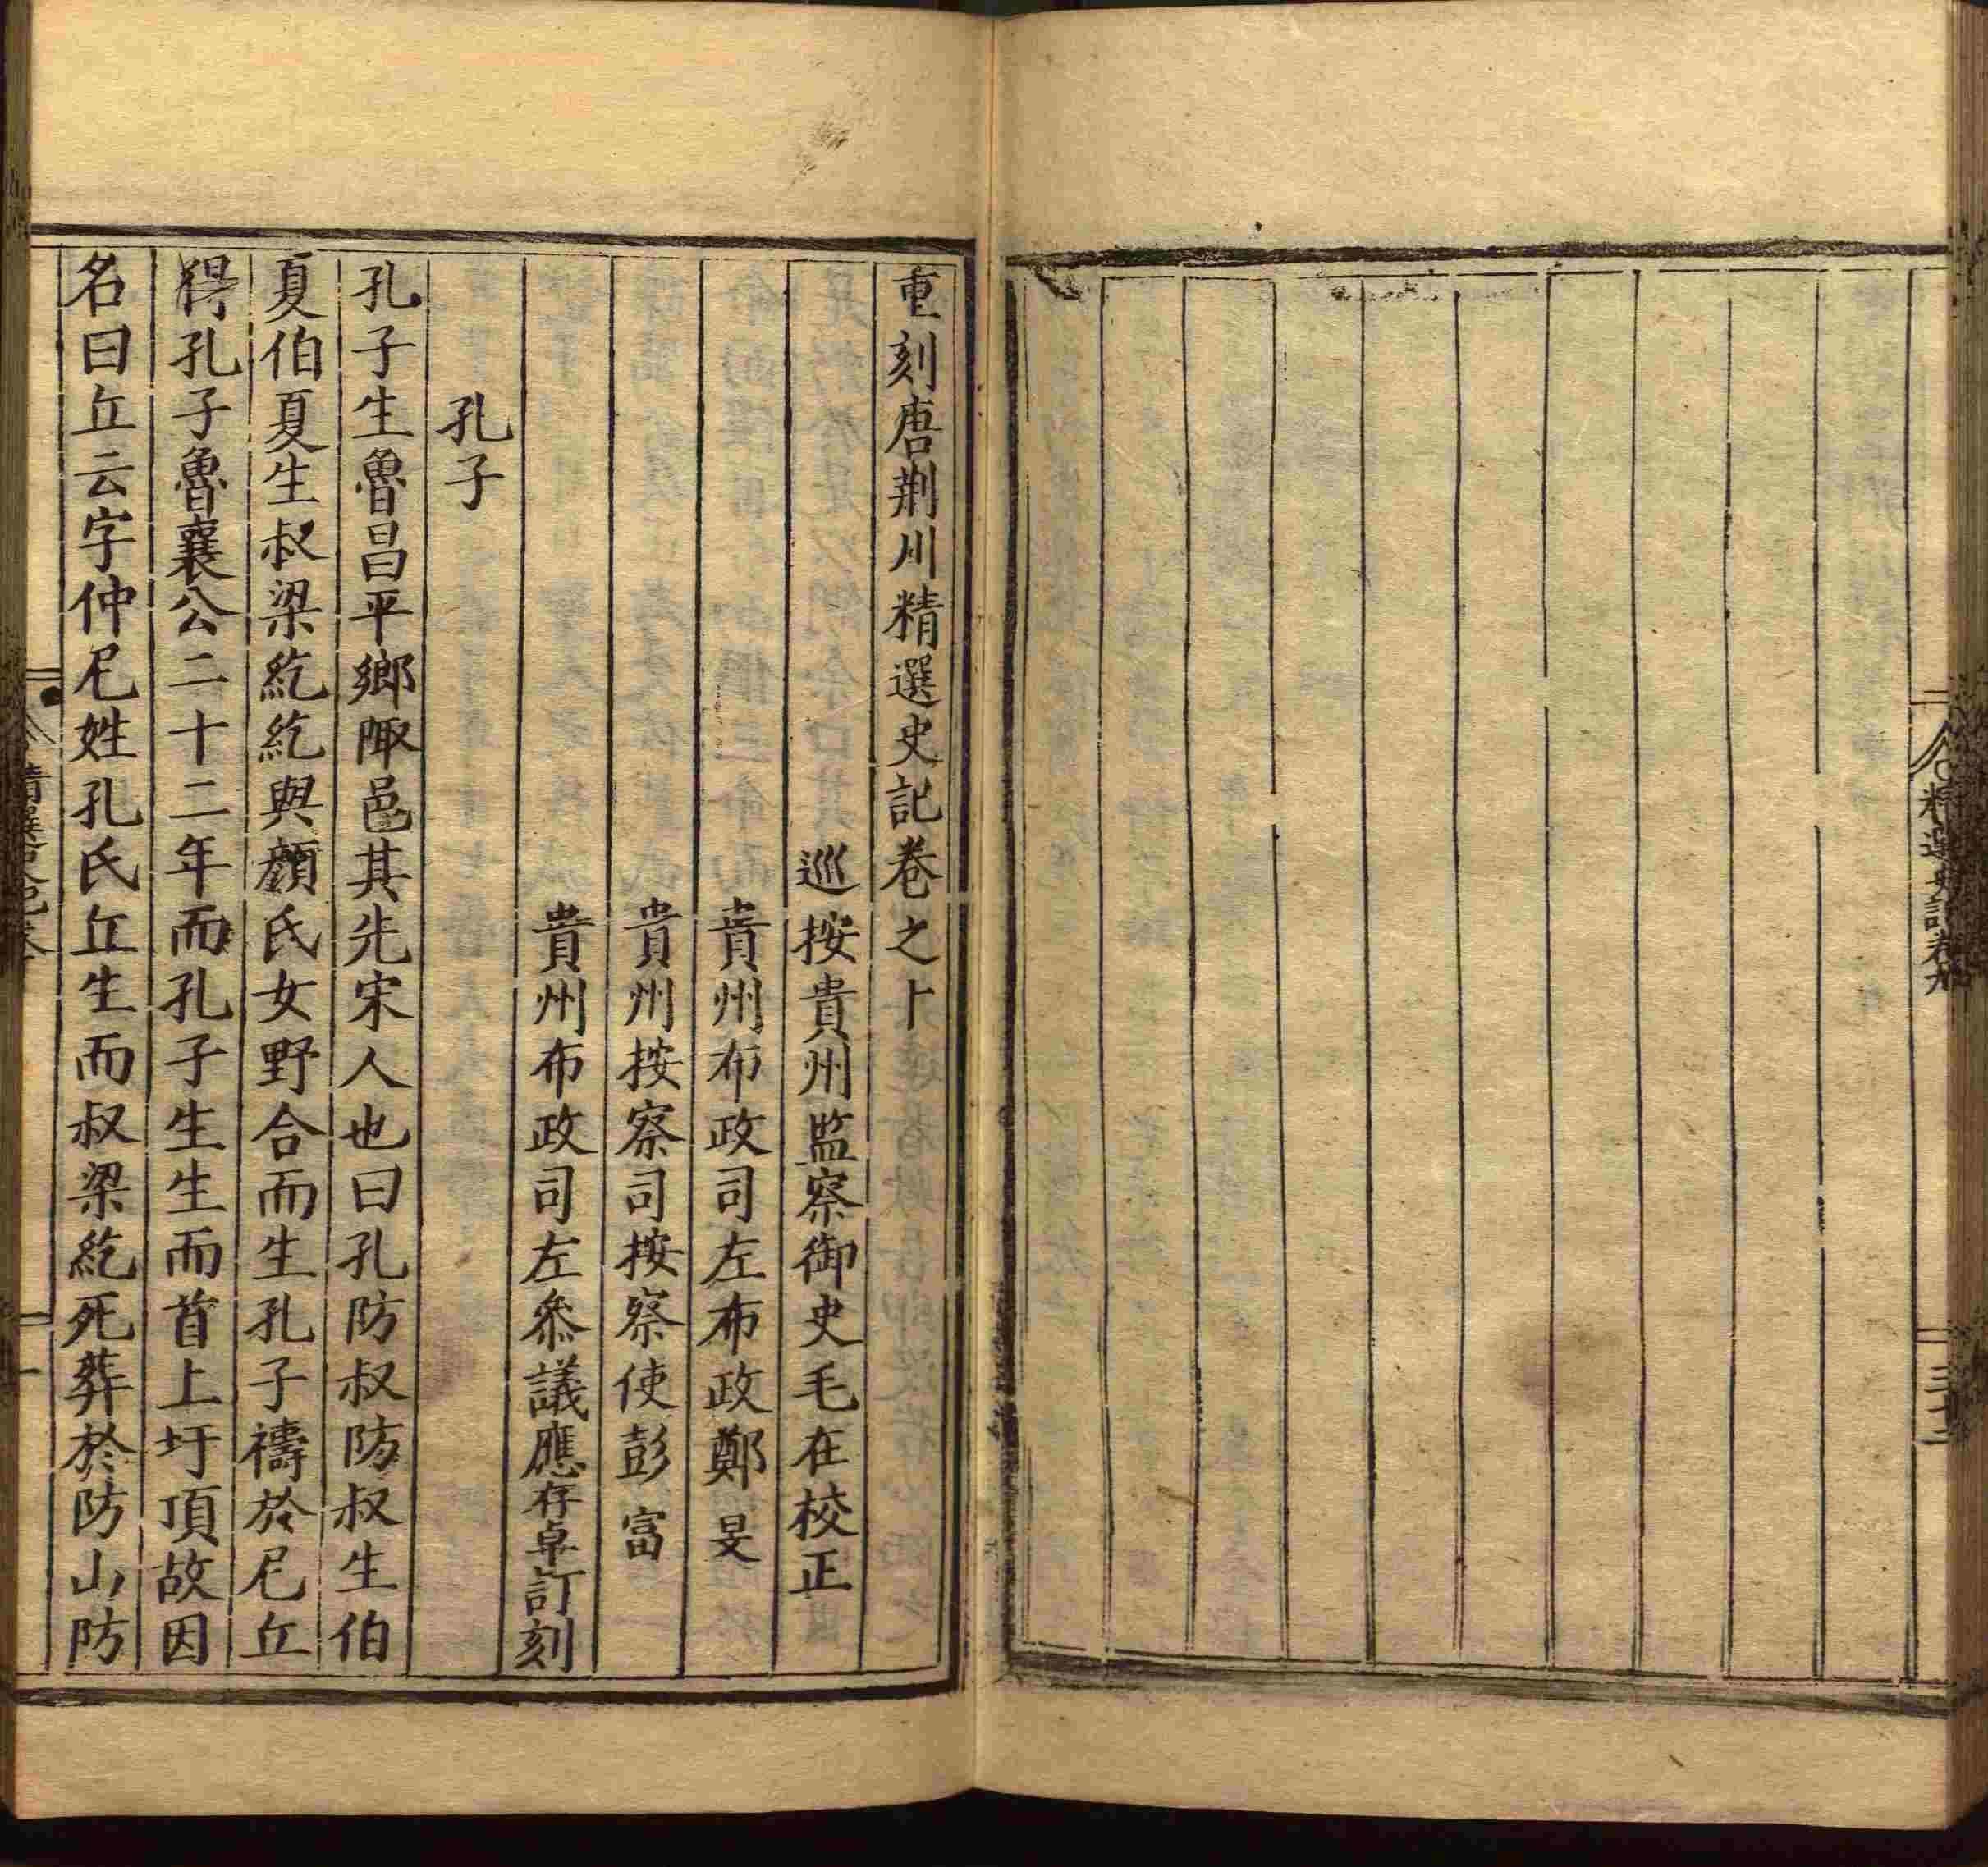 精選史記卷九
三十二
重刻唐荆川精選史記卷之十
巡按貴州監察御史毛在校正
貴州布政司左布政鄭旻
貴州按察司按察使彭富
貴州布政司左叅議應存卓訂刻
孔子
孔子生魯昌平鄉陬邑其先宋人也曰孔防叔防叔生伯
夏伯夏生叔梁紇紇與顔氏女野合而生孔子禱於尼丘
得孔子魯襄公二十二年而孔子生生而首上圩頂故因
名曰丘云字仲尼姓孔氏丘生而叔梁紇死葬於防山防
精選史記卷
一